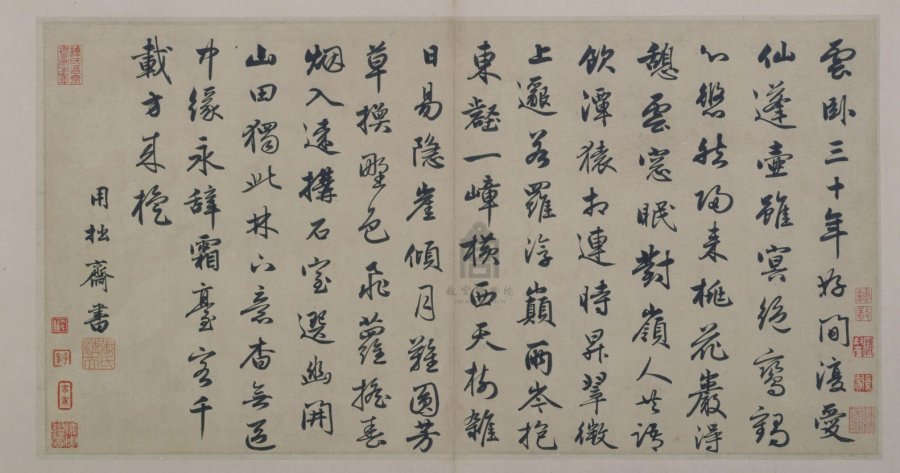 雲卧三十年好閒復愛
仙蓬壺雖冥絕鸞鶴
心悠然歸来桃花巖得
憩雲窓眠對嶺人共語
飲潭猿相連時昇翠微
上邈若羅浮巔兩岑抱
東壑一嶂橫西天樹雜
日易隱崖傾月難圓芳
草換野色飛蘿搖春
烟入遠構石室選幽開
山田獨此林下意杳無區
中緣永辭霜臺客千
載方来旋
用拙齋書